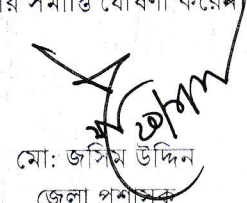 সমাপ্তি ঘোষণা করেন
মো: জসিম উদ্দিন
জেলা প্রশাসক